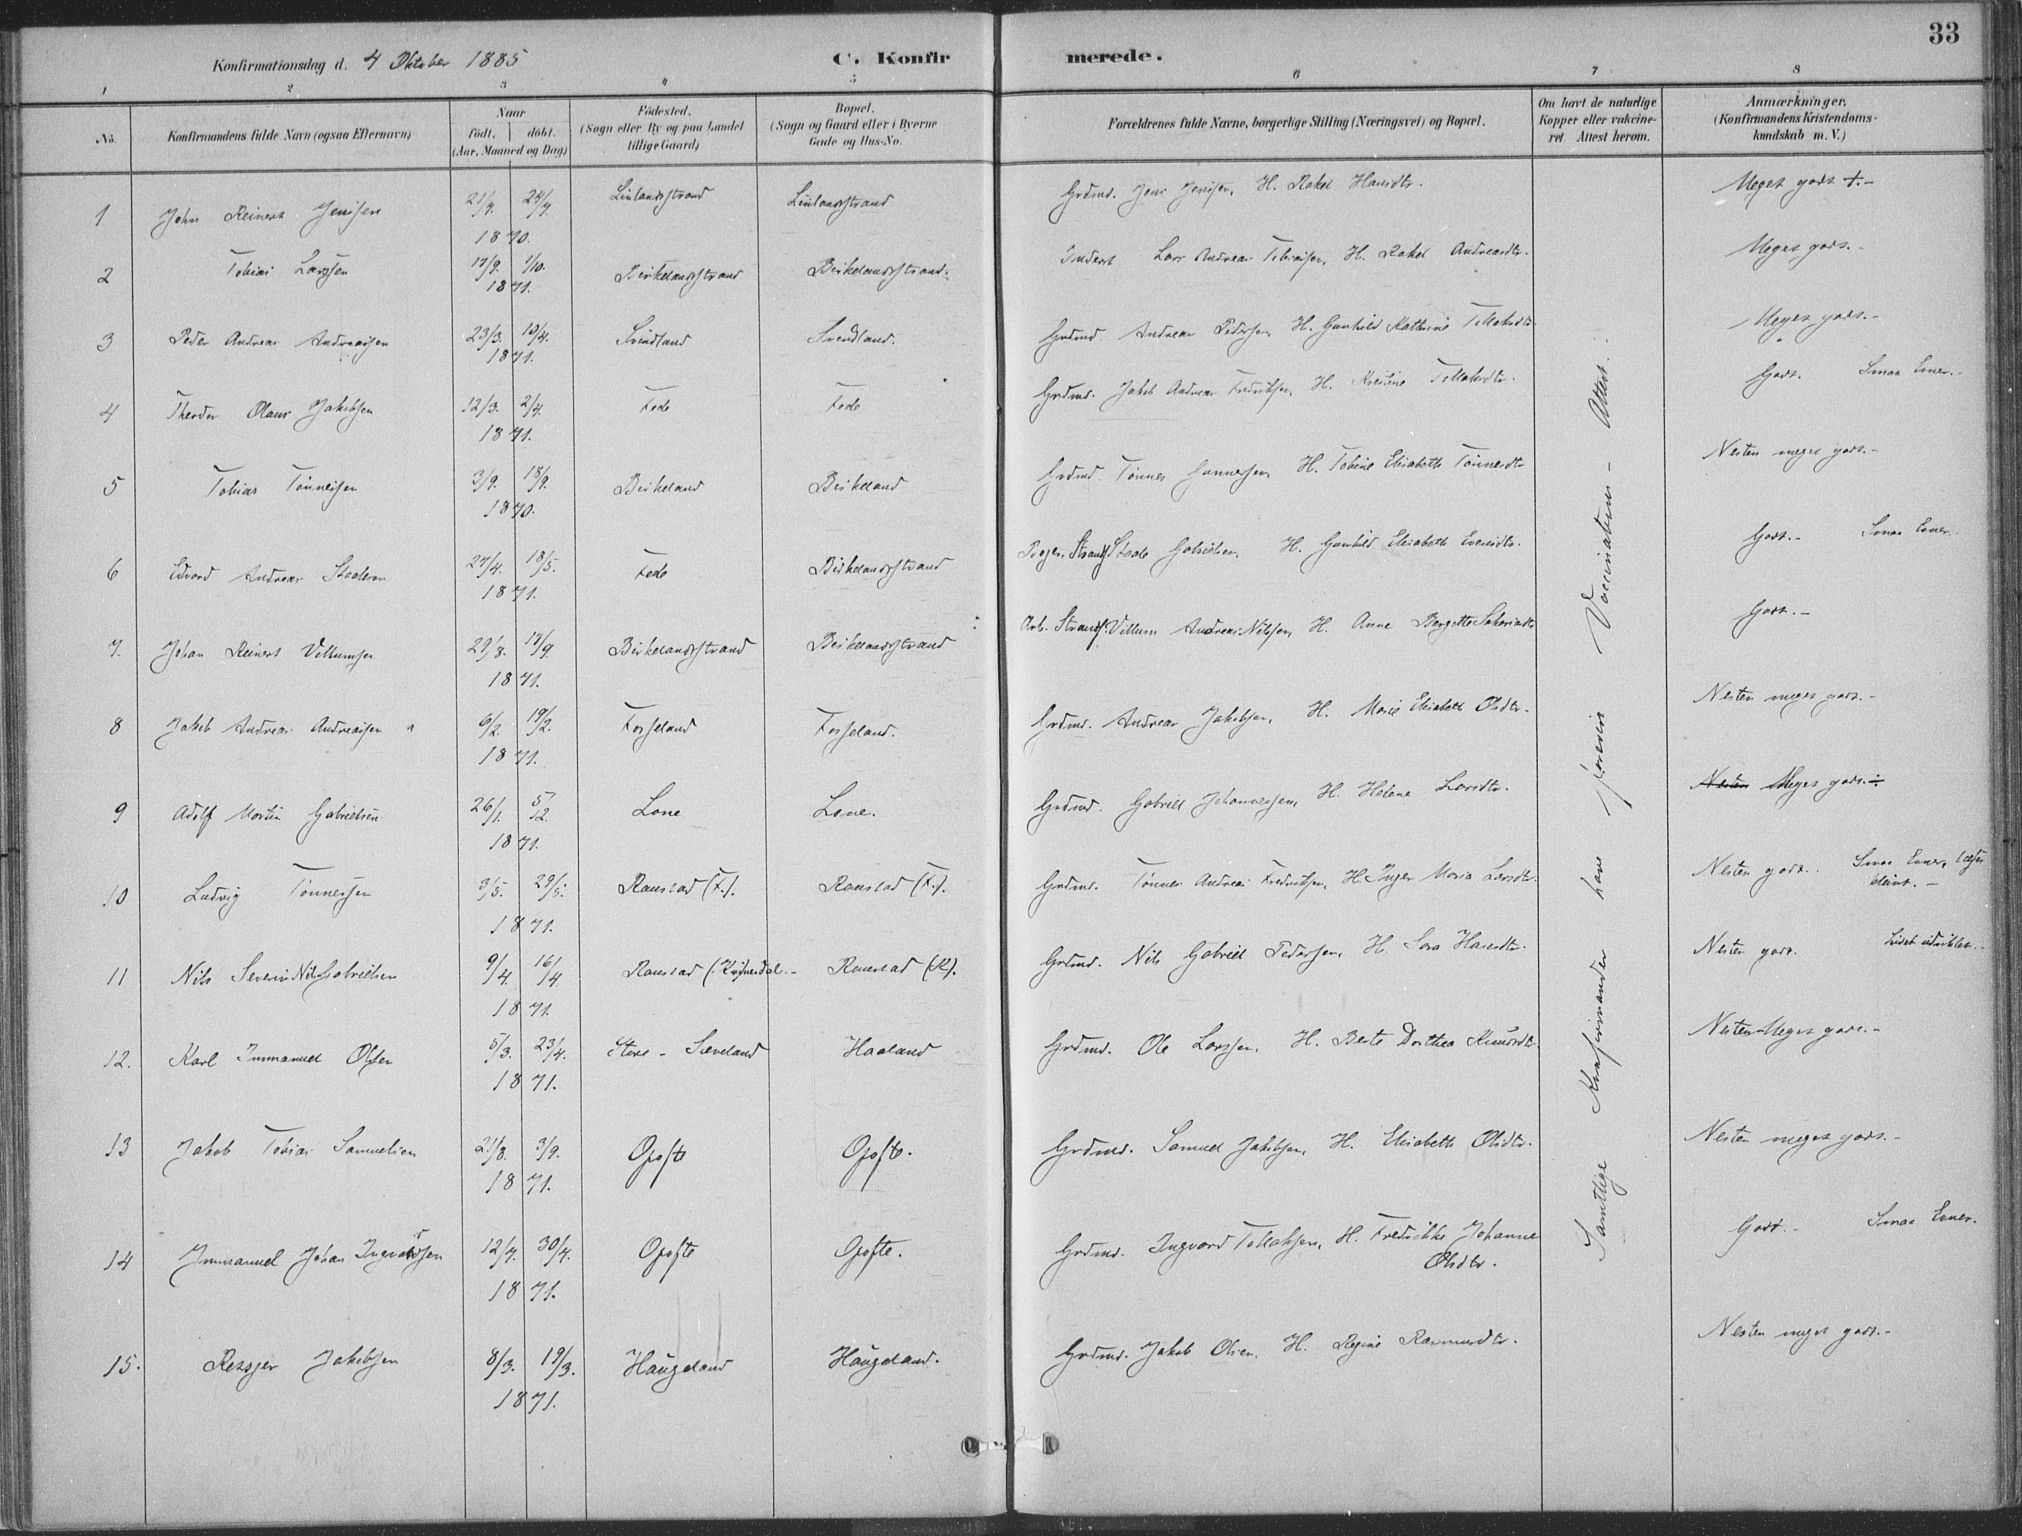 33
Konfirmationsdag d. 4 Oktober 1885 C. Konfirmerede.
1 2 3 4 5 6 7 8
No. Konfirmandens fulde Navn (ogsaa Efternavn) Naar født. døbt. (Aar, Maaned og Dag) Födested. (Sogn eller By og paa Landet tillige Gaard) Bopæl. (Sogn og Gaard eller i Byerne Gade og Hus-No. Forældrenes fulde Navne, borgerlige Stilling (Næringsvei) og Bopæl. Om havt de naturlige Kopper eller vakcineret Attest herom. Anmærkninger. (Konfirmandens Kristendomskundskab m. V.)
1 John Reinert Jensen 21/4 24/4 1870. Linlandsstrand Linlandsstrand Grdmd. Jens Jensen, H. Rakel Hansdtr. Meget godt +.-
2 Tobias Larssen 17/9. 1/10. 1871. Birkelandsstrand Birkelandsstrand. Inderst Lars Andreas Tobiassen, H. Rakel Andreasdtr. Meget godt.-
3 Peder Andreas Andreassen 23/3. 10/4. 1871. Svindland Svendland. Grdmd. Andreas Pedersen, H. Gunhild Kathrine Tollaksdtr. Meget godt.-
4 Theodor Olaus Jakobsen 12/3. 2/4. 1871. Fede Fede Grdmd. Jakob Andreas Fredriksen, H. Kristine Tollaksdtr. Godt. Smaa Evner.-
5 Tobias Tønnessen 3/9. 18/9. 1870. Birkeland Birkeland Grdmd. Tønnes Gunnersen, H. Tobine Elisabeth Tønnesdtr. Nesten meget godt.-
6 Edvard Andreas Stadesen 27/4. 18/5. 1871. Fede Birkelandsstrand Strands. Gabrielsen, H. Gunhild Elisabeth Evensdtr. Godt.- Smaa Evner.
7. Johan Reinert Villumsen 29/8. 17/9. 1871. Birkelandsstrand Birkelandsstrand Arb. Strands. Villum Andreas Nilssen, H. Anne Bergitte Sakariasdtr. Godt.-
8 Jakob Andreas Andreassen 6/2. 19/2. 1871. Fosseland Fosseland. Grdmd. Andreas Jakobsen, H. Marie Elisabeth Olsdtr.- Nesten meget godt.-
9 Adolf Martin Gabrielsen 26/1. 5/2. 1871. Lone Lone. Grdmd. Gabriel Johannessen, H. Helene Larsdtr. Nesten Meget godt.-
10 Ludvig Tønnessen 3/5. 29/5. 1871. Raustad (F.). Raustad (F.). Grdmd. Tønnes Andreas Fredriksen, H. Inger Maria Larsdtr. Nesten godt. Smaa Evner,
11 Nils Severin Nils Gabrielsen 9/4. 16/4. 1871. Raustad (Kvinesdal.- Raustad (K). Grdmd. Nils Gabriel Pedersen, H. Sara Hansdtr. Nesten godt. Lidet udviklet.-
12. Karl Immanuel Olsen 5/3. 23/4. 1871. Store-Sæveland Haaland Grdmd. Ole Larssen, H. Berte Dorthea Knudsdtr. Nesten Meget godt.-
13 Jakob Tobias Samuelsen 21/8. 3/9. 1871. Opofte Opofte. Grdmd. Samuel Jakobsen, H. Elisabeth Olsdtr. Nesten meget godt.-
14 Immanuel Johan Ingvardsen 12/4. 30/4. 1871. Opofte Opofte. Grdmd. Ingvard Tollaksen, H. Fredrikke Johanne Olsdtr. Godt.- Smaa Evner.
15. Jakobsen 8/3. 19/3. 1871. Haugeland Haugeland. Grdmd. Jakob Olsen. H. Regine Rasmusdtr. Nesten meget godt.-
Samtlige Konfirmander have Vaccinations-Attest.